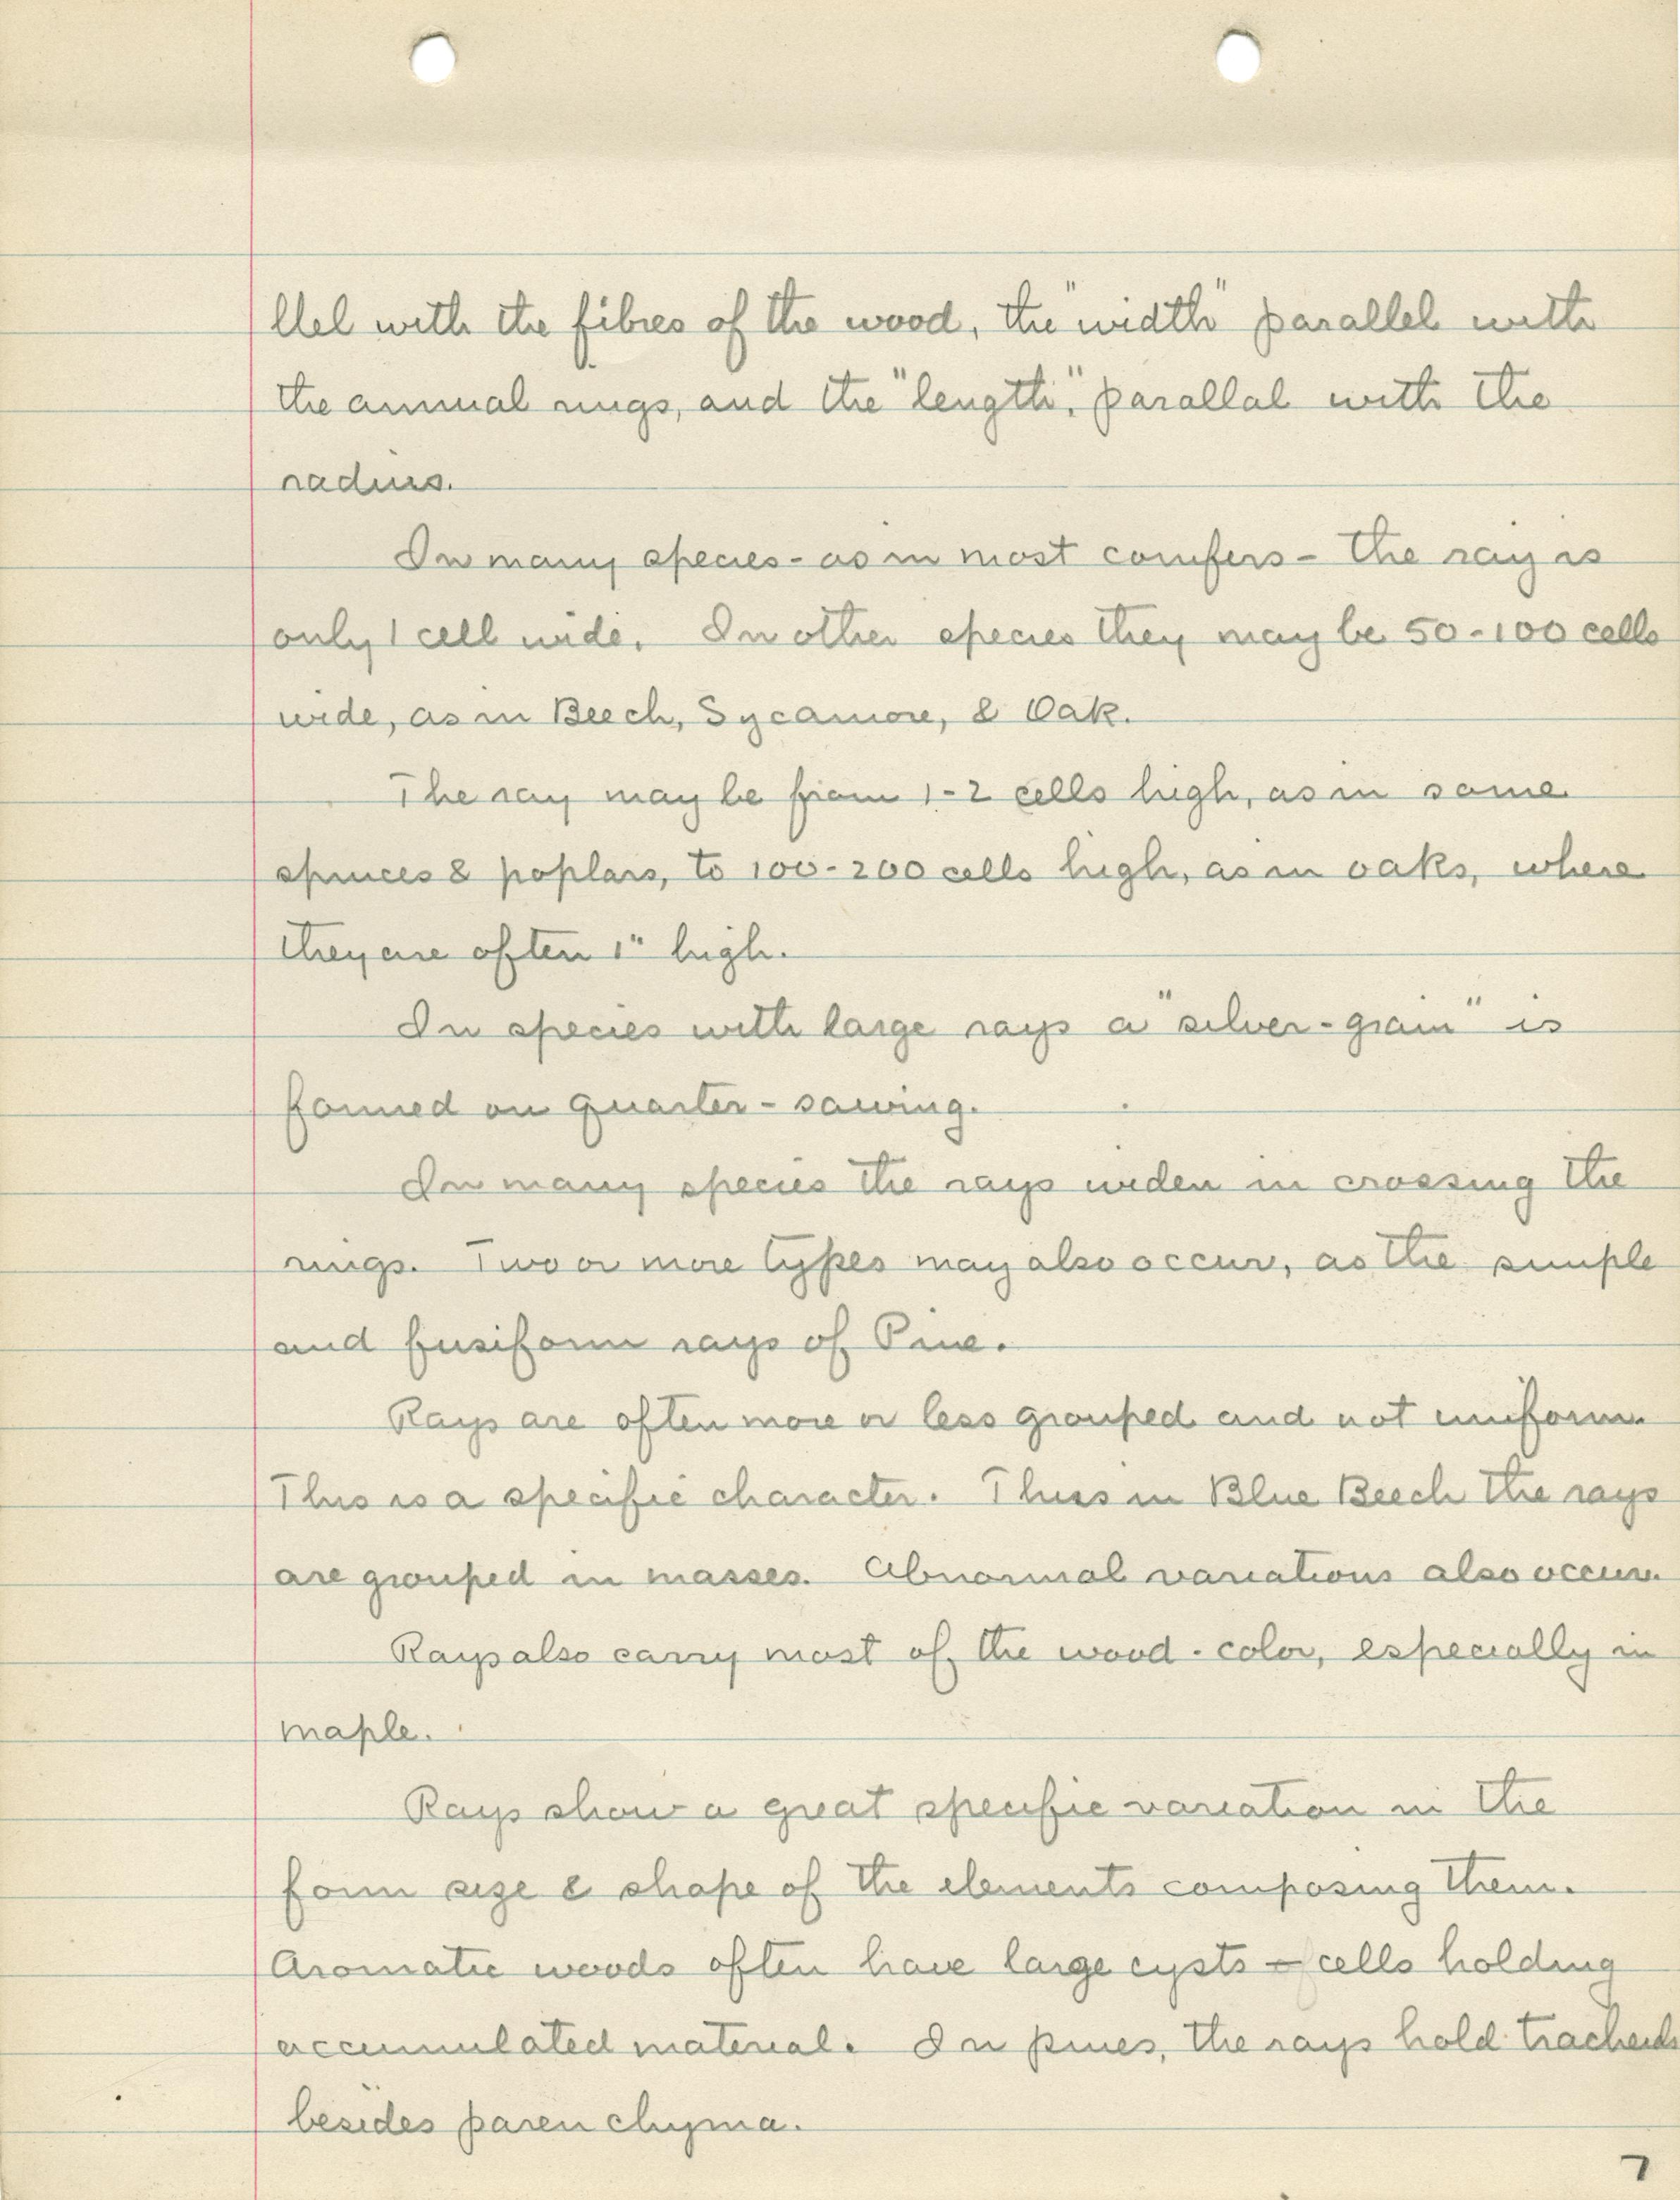 llel with the fibres of the wood, the "width" parallel with
the annual rings, and the "length", parallal with the
radius.
In many species - as in most conifers - the ray is
only 1 cell wide. In other species they may be 50-100 cells
wide, as in Beech, Sycamore, & Oak.
The ray may be from 1-2 cells high, as in some
spruces & poplars, to 100-200 cells high, as in oaks, where
they are often 1" high.
In species with large rays a "silver-grain" is
formed on quarter-sawing.
In many species the rays widen in crossing the
rings. Two or more types may also occur, as the simple
and fusiform rays of Pine.
Rays are often more or less grouped and not uniform.
This is a specific character. Thus in Blue Beech the rays
are grouped in masses. Abnormal variations also occur.
Rays also carry most of the wood-color, especially in
maple.
Rays show a great specific variation in the
form size & shape of the elements composing them.
Aromatic woods often have large cysts - cells holding
accumulated material. In pines, the rays hold tracheids
besides parenchyma.
7